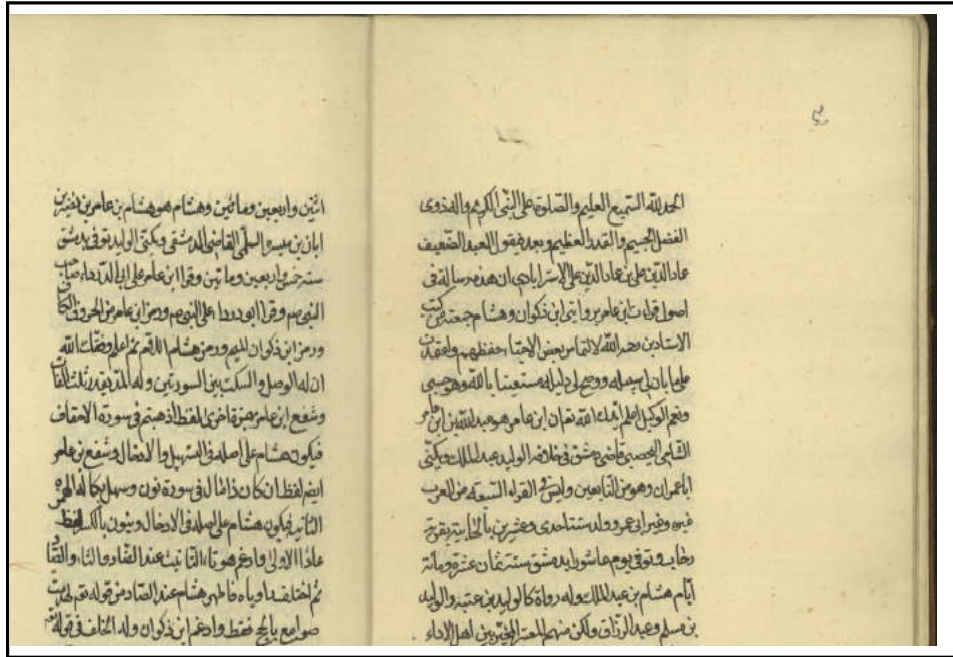 الحمد لله السميع العليم والصلوة على النبى الكريم واله ذوى
الفضل الجسيم والقدر العظيم وبعد فيقول العبد الضعيف
عماد الدين على بن عماد الدين على الاسترابادى ان هذه رسالة فى
اصول قراءت ابن عامر بروايتى ابن ذكوان وهشام جمعته من كتب
الاستادين رحمهم الله لالتماس بعض الاحبا حفظهم
على ابان لى سبيله ووضح لى دليله مستعينا بالله وهو حسبى
ونعم الوكيل اعلم ايدك الله تع ان ابن عامر هو عبد الله بن عامر
الشامى اليحصبى قاضى دمشق فى خلافة الوليد عبد الملك ويكنى
ابا عمران وهو من التابعين وليس فى القراء السبعة من العرب
غيره وغير ابى عمرو ولد سنة احدى وعشرين بقرية
رحاب وتوفى يوم عاشورا بدمشق سنة ثمان عشرة ومائة
ايام هشام بن عبد الملك وله رواة كالوليد بن عتبه والوليد
بن مسلم وعبد الرزاق ولكن منهم بين اهل الاداء
اثنين واربعين ومائتين وهشام هو هشام بن عامر بن نصير بن
ابان بن ميسره السلمى القاضى الدمشقى ويكنى الوليد توفى بدمشق
سنه خمس واربعين وماتين وقرا ابن عامر على ابى الدرداء صاحب
النبى صم وقرا ابو دردا على النبى صم ورمز ابن عامر من الحروف الكاف
ورمز ابن ذكوان الميم ورمز هشام اللام ثم اعلم وفقك الله
ان له الوصل والسكت بين السورتين وله المد بقدر ثلث الفات
وشفع ابن عامر بهمزة اخرى لفظ اذهبتم فى سورة الاحقاف
فيكون هشام على اصله فى التسهيل والادخال وشفع بن عامر
ايضا لفظ ان كان ذا مال فى سورة نون وسهل بكماله الهمزه
الثانيه فيكون هشام على اصله فى الادخال وينون بالكسر لفظ
عادا الاولى وادغم هو تاء التانيث عند الضاد والثاء والظا
ثم اختلف راوياه فاظهر هشام عند الصاد من قوله تع لهدمت
صوامع بالحج فقط وادغم ابن ذكوان وله الخلف فى قوله تع